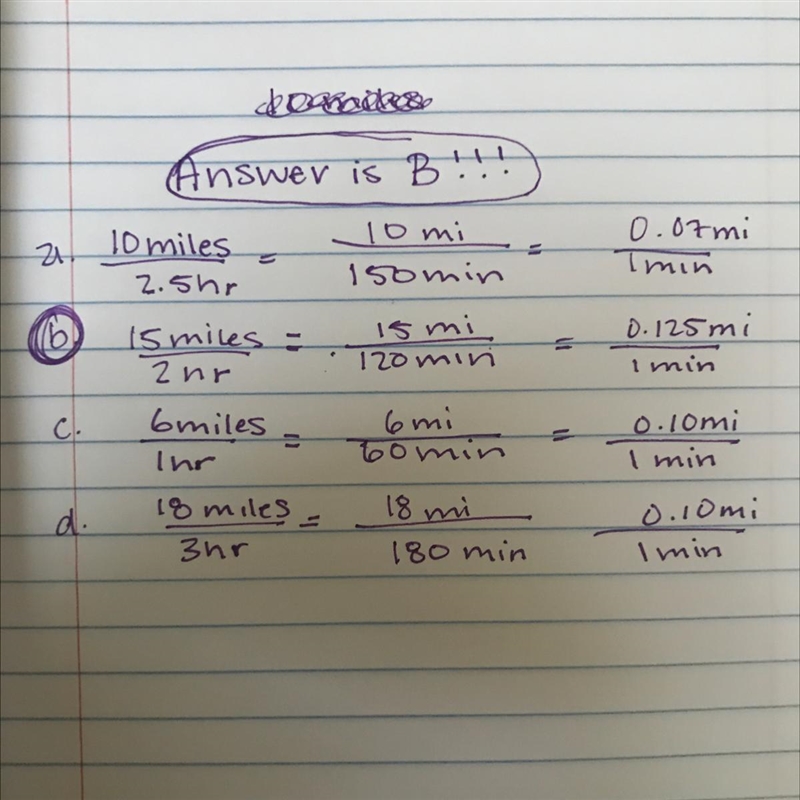 Answer is B!!!
a. 10 miles / 2.5 hr = 10 mi / 150 min = 0.07 mi / 1 min
b 15 miles / 2 hr = 15 mi / 120 min = 0.125 mi / 1 min
c. 6 miles / 1 hr = 6 mi / 60 min = 0.10 mi / 1 min
d. 18 miles / 3 hr = 18 mi / 180 min 0.10 mi / 1 min